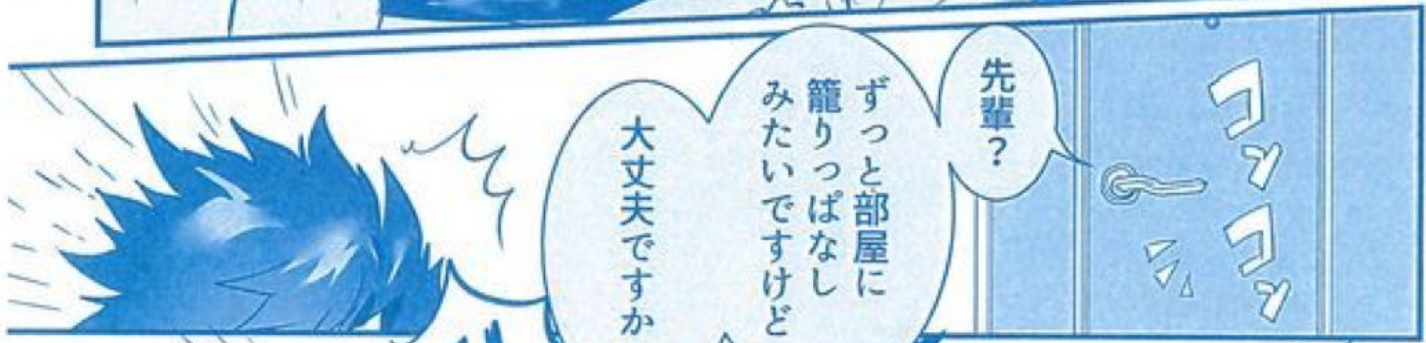 コンコン
先輩？
ずっと部屋に
籠りっぱなし
みたいですけど
大丈夫ですか